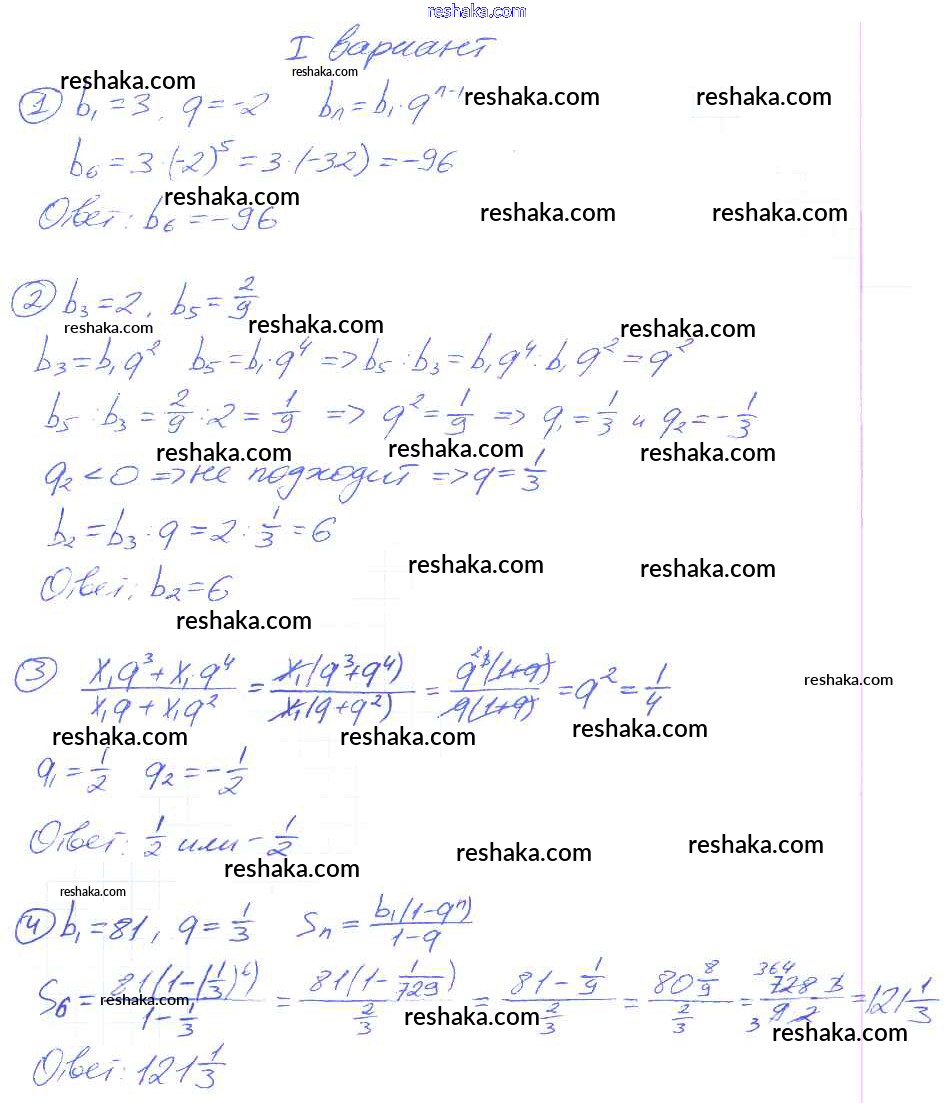 reshaka.com
I вариант
reshaka.com reshaka.com
① b₁ = 3, q = -2 bₙ = b₁ · qⁿ⁻¹ reshaka.com reshaka.com
b₆ = 3 · (-2)⁵ = 3 · (-32) = -96
reshaka.com
Ответ: b₆ = -96 reshaka.com reshaka.com
② b₃ = 2, b₅ = 2/9
reshaka.com reshaka.com reshaka.com
b₃ = b₁q² b₅ = b₁ · q⁴ => b₅ : b₃ = b₁q⁴ : b₁q² = q²
b₅ : b₃ = 2/9 : 2 = 1/9 => q² = 1/9 => q₁ = 1/3 и q₂ = -1/3
reshaka.com reshaka.com reshaka.com
q₂ < 0 => не подходит => q = 1/3
b₂ = b₃ : q = 2 : 1/3 = 6
reshaka.com reshaka.com
Ответ: b₂ = 6
reshaka.com
③ (x₁q³ + x₁q⁴)/(x₁q + x₁q²) = x₁(q³+q⁴)/x₁(q+q²) = q³(1+q)/q(1+q) = q² = 1/4 reshaka.com
reshaka.com reshaka.com reshaka.com
q₁ = 1/2 q₂ = -1/2
Ответ: 1/2 или -1/2
reshaka.com reshaka.com reshaka.com
reshaka.com
④ b₁ = 81, q = 1/3 Sₙ = b₁(1-qⁿ)/(1-q)
S₆ = 81(1-(1/3)⁶)/(1-1/3) = 81(1-1/729)/(2/3) = (81-1/9)/(2/3) = (80 8/9)/(2/3) = (728 · 3)/(9 · 2) = 121 1/3
reshaka.com reshaka.com reshaka.com
Ответ: 121 1/3